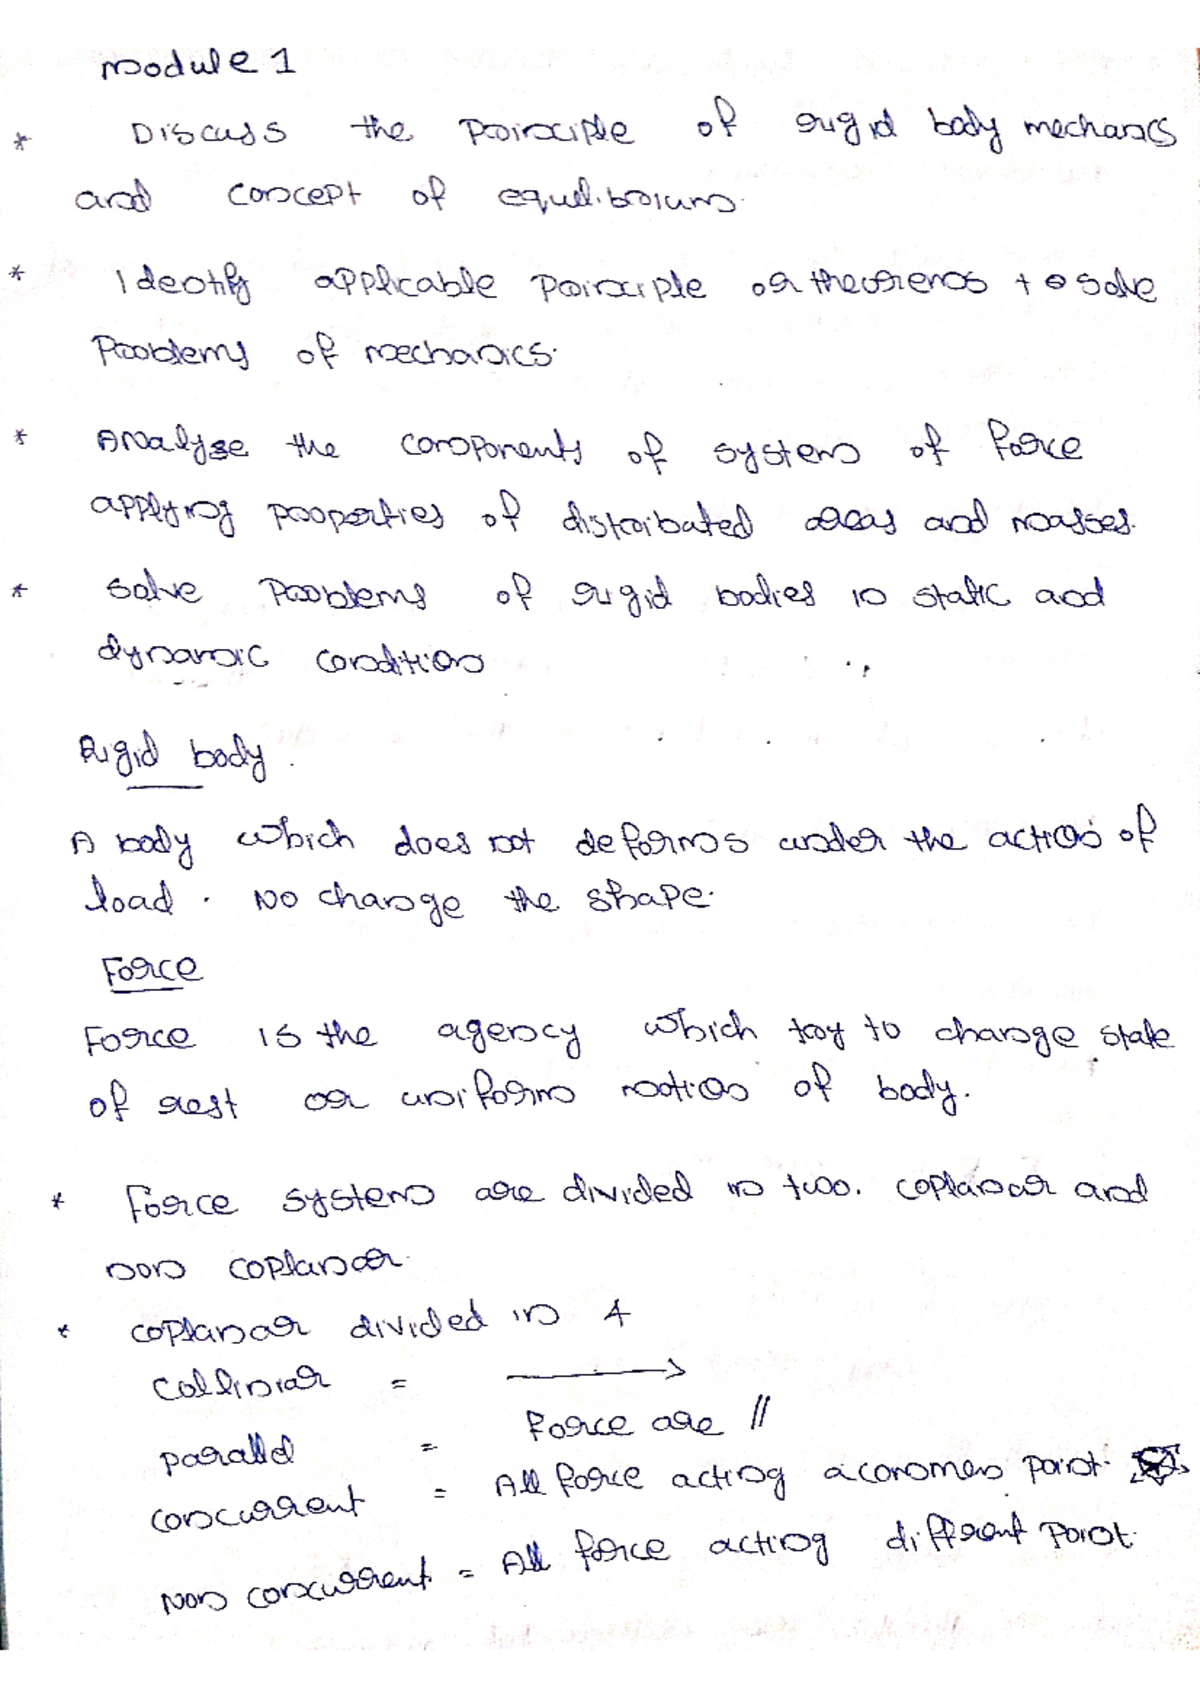 Module 1
* Discuss the Principle of rigid body mechanics
and concept of equilibrium.
* Identify applicable principle or theorems to solve
Problems of mechanics.
* Analyze the components of system of force
applying properties of distributed areas and masses.
* Solve Problems of rigid bodies in static and
dynamic condition
Rigid body.
A body which does not deforms under the action of
load. No change the shape.
Force
Force is the agency which try to change state
of rest or uniform motion of body.
* Force system are divided in two. coplanar and
non coplanar.
* coplanar divided in 4
Colliniar = ⟶
parallel = Force are //
concurrent = All force acting a common point.
Non concurrent = All force acting different Point.